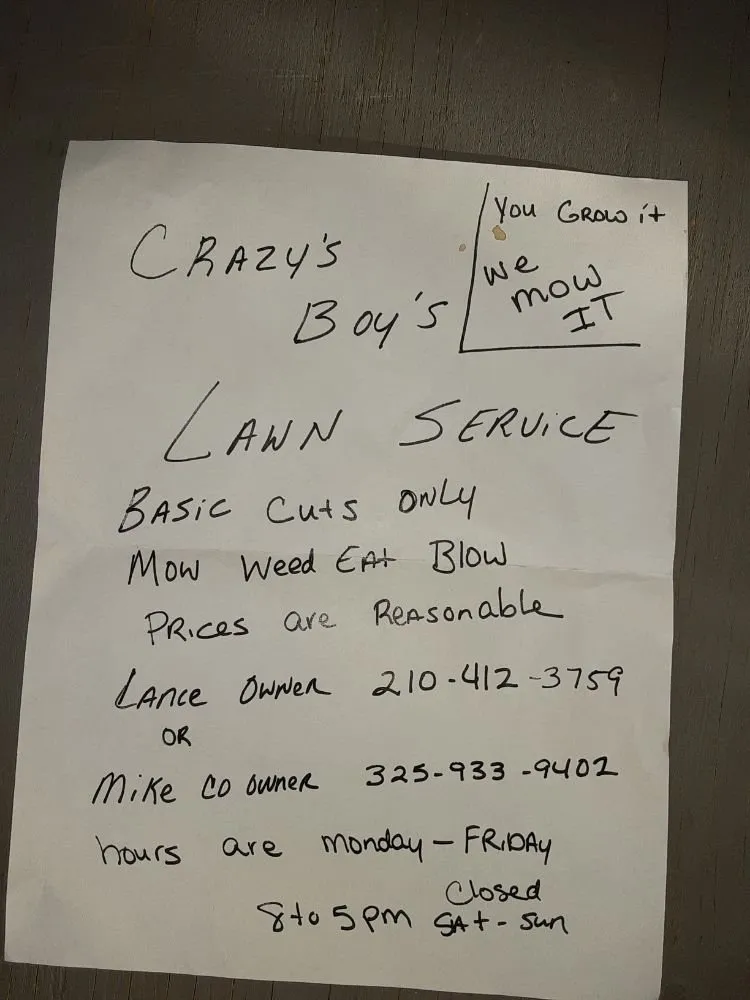 CRAZY'S
BOY'S
You GROW it
we
mow
IT
LAWN SERVICE
BASIC Cuts ONLY
Mow Weed EAt Blow
PRICES are REASonable
LANCE OWNER 210-412-3759
OR
MiKe CO OWNER 325-933-9402
hours are monday - FRIDAY
8 to 5 pm Closed
SAt - Sun